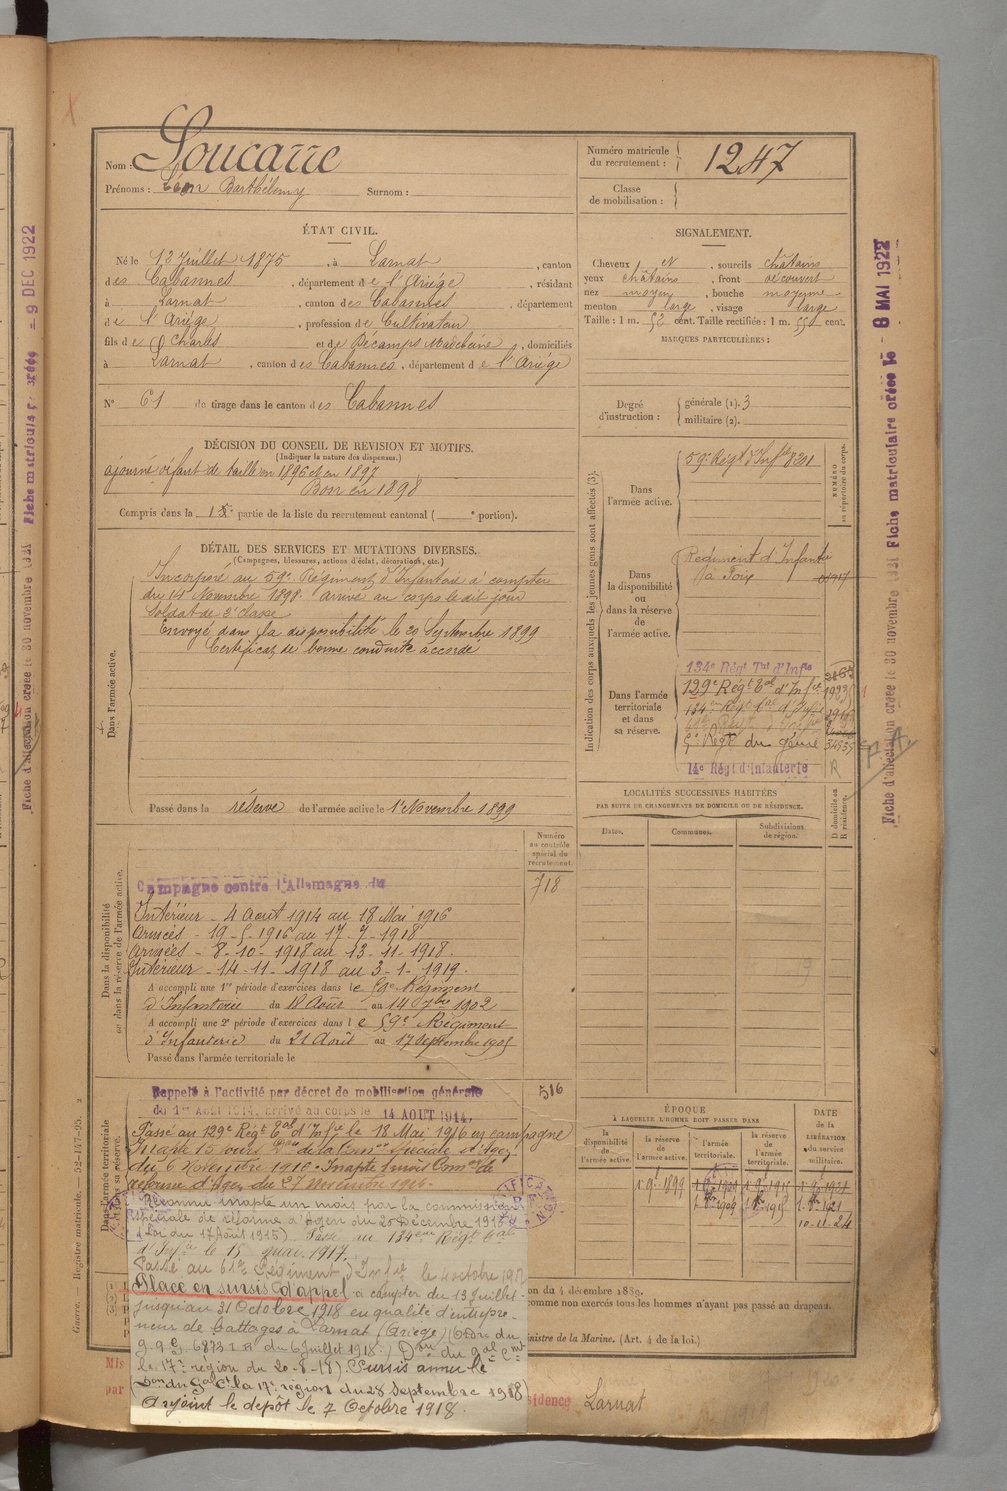 Nom : Soucarre
Prénoms : Léon Barthélemy Surnom :
Numéro matricule du recrutement : 1247
Classe de mobilisation :
ÉTAT CIVIL.
Né le 13 Juillet 1875, à Larnat, canton
des Cabannes, département de l'Ariège, résidant
à Larnat, canton des Cabannes, département
de l'Ariège, profession de Cultivateur
fils de Charles et de Décamps Madeleine, domiciliés
à Larnat, canton des Cabannes, département de l'Ariège
N° 61 de tirage dans le canton des Cabannes
SIGNALEMENT.
Cheveux et, sourcils châtains
yeux châtains, front découvert
nez moyen, bouche moyenne
menton large, visage large
Taille : 1 m. 52 cent. Taille rectifiée : 1 m. 55 cent.
MARQUES PARTICULIÈRES :
Degré d'instruction : générale (1). 3
militaire (2).
DÉCISION DU CONSEIL DE REVISION ET MOTIFS.
(Indiquer la nature des dispenses.)
ajourné défaut de taille en 1896 et en 1897
Bon en 1898
Compris dans la 1e partie de la liste du recrutement cantonal ( e portion).
DÉTAIL DES SERVICES ET MUTATIONS DIVERSES.
(Campagnes, blessures, actions d'éclat, décorations, etc.)
Dans l'armée active.
Incorporé au 59e Régiment d'Infanterie à compter
du 14 Novembre 1898. arrivé au corps le dit jour
Soldat de 2e classe
Envoyé dans la disponibilité le 20 Septembre 1899
Certificat de bonne conduite accordé
Passé dans la réserve de l'armée active le 1er Novembre 1899
Indication des corps auxquels les jeunes gens sont affectés (3).
NUMÉRO au répertoire du corps.
Dans l'armée active.
59e Régt d'Infrie 8201
Dans la disponibilité ou dans la réserve de l'armée active.
Régiment d'Infanterie
Foix
Dans l'armée territoriale et dans sa réserve.
134e Régt Tal d'Infie
129e Régt Tal d'Infie
134e Régt Tal d'Infie
5e Régt du génie
14e Régt d'Infanterie R
LOCALITÉS SUCCESSIVES HABITÉES
PAR SUITE DE CHANGEMENTS DE DOMICILE OU DE RÉSIDENCE.
Dates. Communes. Subdivisions de région. D domicile ou R résidence.
Numéro au contrôle spécial du recrutement.
718
Dans la disponibilité ou dans la réserve de l'armée active.
Campagne contre l'Allemagne du
Intérieur - 4 Aout 1914 au 18 Mai 1916
Armées - 19-5-1916 au 17-7-1918
Armées - 8-10-1918 au 13-11-1918.
Intérieur - 14-11-1918 au 3-1-1919.
A accompli une 1re période d'exercices dans le 59e Régiment
d'Infanterie du 18 Août au 14 7bre 1902
A accompli une 2e période d'exercices dans le 59e Régiment
d'Infanterie du 21 Août au 17 Septembre 1905
Passé dans l'armée territoriale le
516
Rappelé à l'activité par décret de mobilisation générale
du 1er Août 1914, arrivé au corps le 14 AOUT 1914.
Passé au 129e Régt Tal d'Infie le 18 Mai 1916 en campagne
Inapte 15 jours Con de la Comon spéciale d'Agen
du 6 Novembre 1916. Inapte 1 mois Comon de
réforme d'Agen du 27 Novembre 1916.
Reconnu inapte un mois par la commission
spéciale de réforme d'Agen du 20 Décembre 1916
(Loi du 17 Août 1915) Passé au 134eme Régt Tal
d'Infie le 15 Mai 1917.
Passé au Régiment d'Infrie le 4 octobre 1917
Placé en sursis d'appel à compter du 13 Juillet
jusqu'au 31 Octobre 1918 en qualité d'entrepre-
neur de battages à Larnat (Ariège) (Ordre du
G.Q.G. 6873 I.R. du 6 Juillet 1918) Don du Gal Cmt
la 17e région du 20-8-18). Sursis annulé
(Don du Gal Ct la 17e région du 28 Septembre 1918)
Rejoint le dépôt le 7 Octobre 1918.
ÉPOQUE
À LAQUELLE L'HOMME DOIT PASSER DANS
la disponibilité de l'armée active. la réserve de l'armée active. l'armée territoriale. la réserve de l'armée territoriale.
DATE de la LIBÉRATION du service militaire.
1 9e 1899
10-11-24
on du 4 décembre 1889.
comme non exercés tous les hommes n'ayant pas passé au drapeau.
inistre de la Marine. (Art. 4 de la loi.)
Mis
par
sidence Larnat
Guerre. — Registre matricule. — 52-147-95. 2
9 DEC 1922
Fiche matriculaire créée le - 8 MAI 1922
Fiche d'affectation créée le 30 novembre 1921